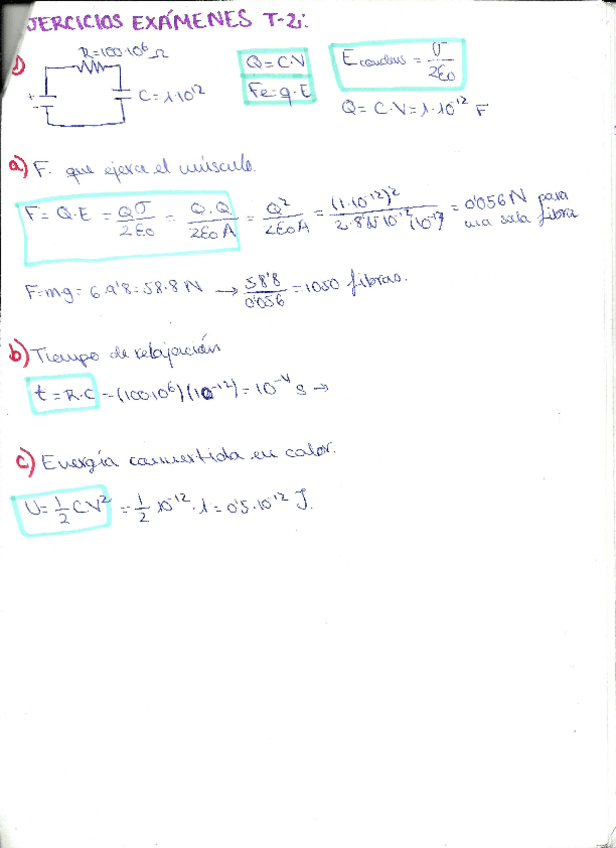 JERCICIOS EXÁMENES T-2i:
1)
R=100·10⁶ Ω
C=1·10¹²
Q=C·V
Fe=q·E
E = σ/2ε₀
Q=C·V=1·10⁻¹² F
a) F. que ejerce el músculo.
F=Q·E=Qσ/2ε₀=Q·Q/2ε₀A=Q²/2ε₀A=(1·10⁻¹²)²/2·8'85·10⁻¹²(10⁻¹²)=0'056N para una sola fibra
F=m·g=6·9'8=58.8N → 58'8/0'056=1050 fibras.
b) Tiempo de relajación
t=R·C=(100·10⁶)(10⁻¹²)=10⁻⁴ s →
c) Energía convertida en calor.
U=1/2 CV²=1/2 10⁻¹²·1=0'5·10⁻¹² J.